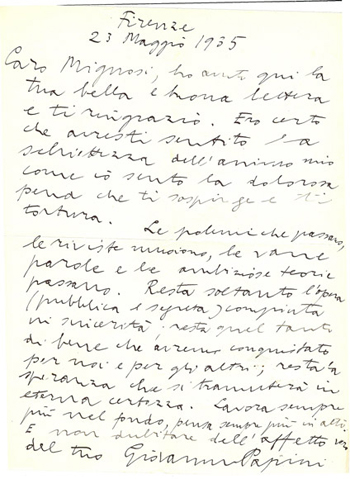 Firenze
23 Maggio 1935
Caro Mignosi, ho avuto qui la
tua bella e buona lettera
e ti ringrazio. Ero certo
che avresti sentito la
schiettezza dell'animo mio
come io sento la dolorosa
pena che ti sospinge e ti
tortura. Le polemiche passano,
le riviste muoiono, le vane
parole e le ambiziose teorie
passano. Resta soltanto l'opera
(pubblica e segreta) compiuta
in sincerità; resta quel tanto
di bene che avremo conquistato
per noi e per gli altri; resta la
speranza che si tramuterà in
eterna certezza. Lavora sempre
più nel fondo, pensa sempre più in alto.
E non dubitare dell'affetto vero
del tuo Giovanni Papini